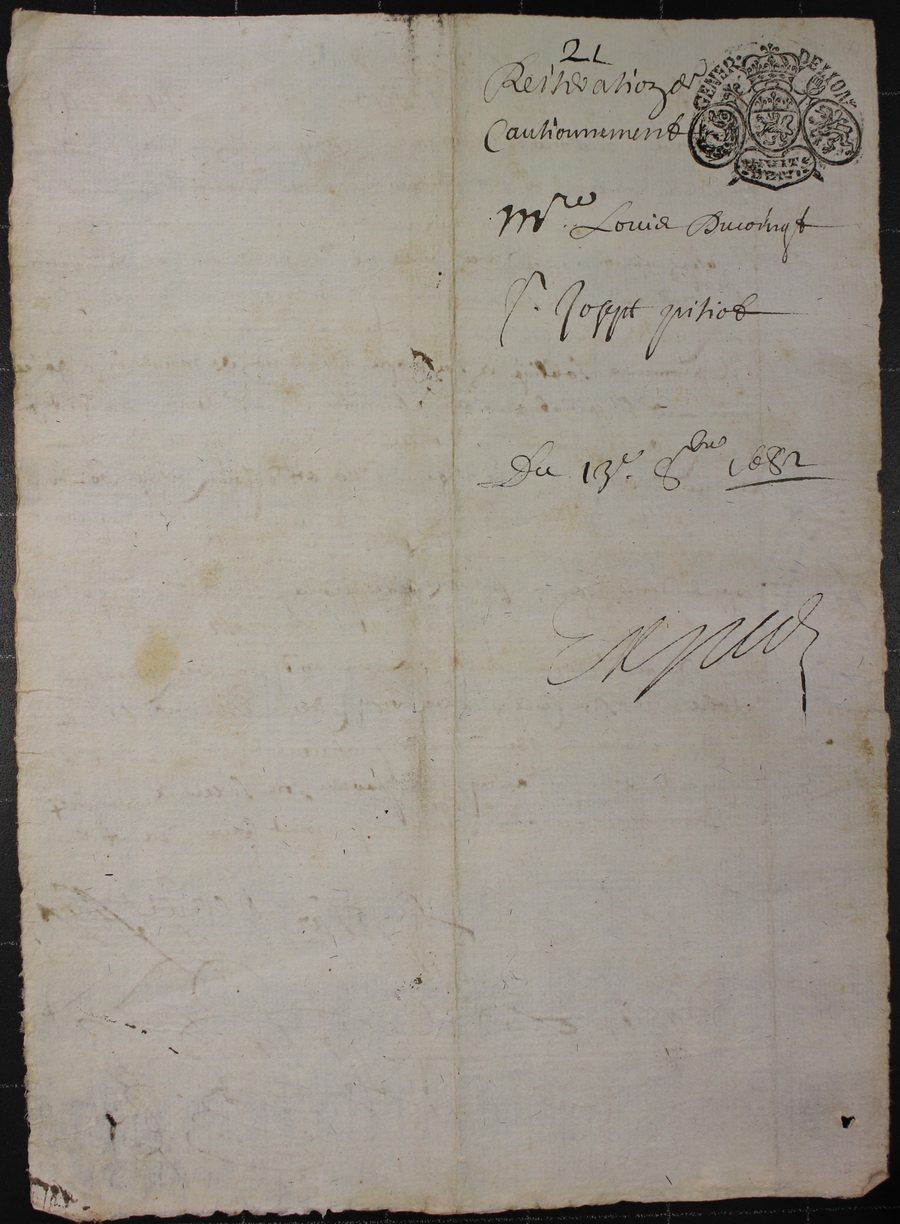 21
Reiteration de
Cautionnement
GENER. DE LYON
HUIT DEN.
Mre Louis Ducoingt
Sr. Joseph pitiot
Du 13e. 8bre 1682